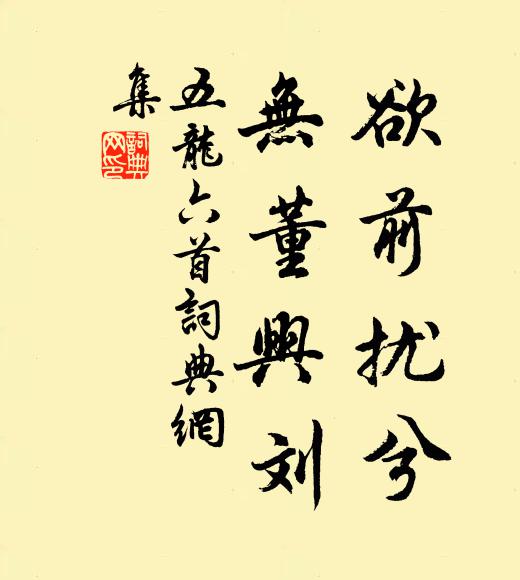 欲前扰兮
無董與刘
五龍六首詞典網
集
詞典網印